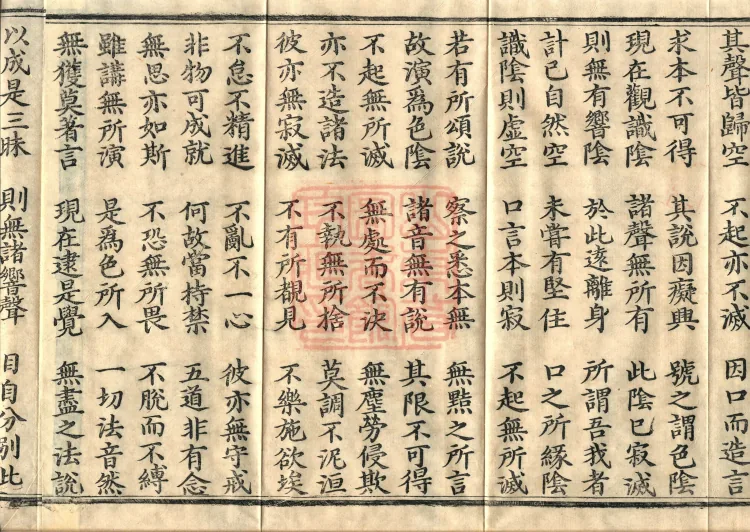 其聲皆歸空 不起亦不滅 因口而造言
求本不可得 其說因癡興 號之謂色陰
現在觀識陰 諸聲無所有 此陰已寂滅
則無有響陰 於此遠離身 所謂吾我者
計已自然空 未嘗有堅住 口之所緣陰
識陰則虛空 口言本則寂 不起無所滅
若有所頌說 察之悉本無 無黠之所言
故演為色陰 諸音無有說 其限不可得
不起無所滅 無處而不決 無塵勞侵欺
亦不造諸法 不執無所捨 莫調不泥洹
彼亦無寂滅 不有所覩見 不樂施欲埃
不怠不精進 不亂不一心 彼亦無守戒
非物可成就 何故當持禁 五道非有念
無思亦如斯 不恐無所畏 不脫而不縛
雖講無所演 是為色所入 一切法音然
無獲莫著言 現在逮是覺 無盡之法說
以成是三昧 則無諸響聲 目自分別此